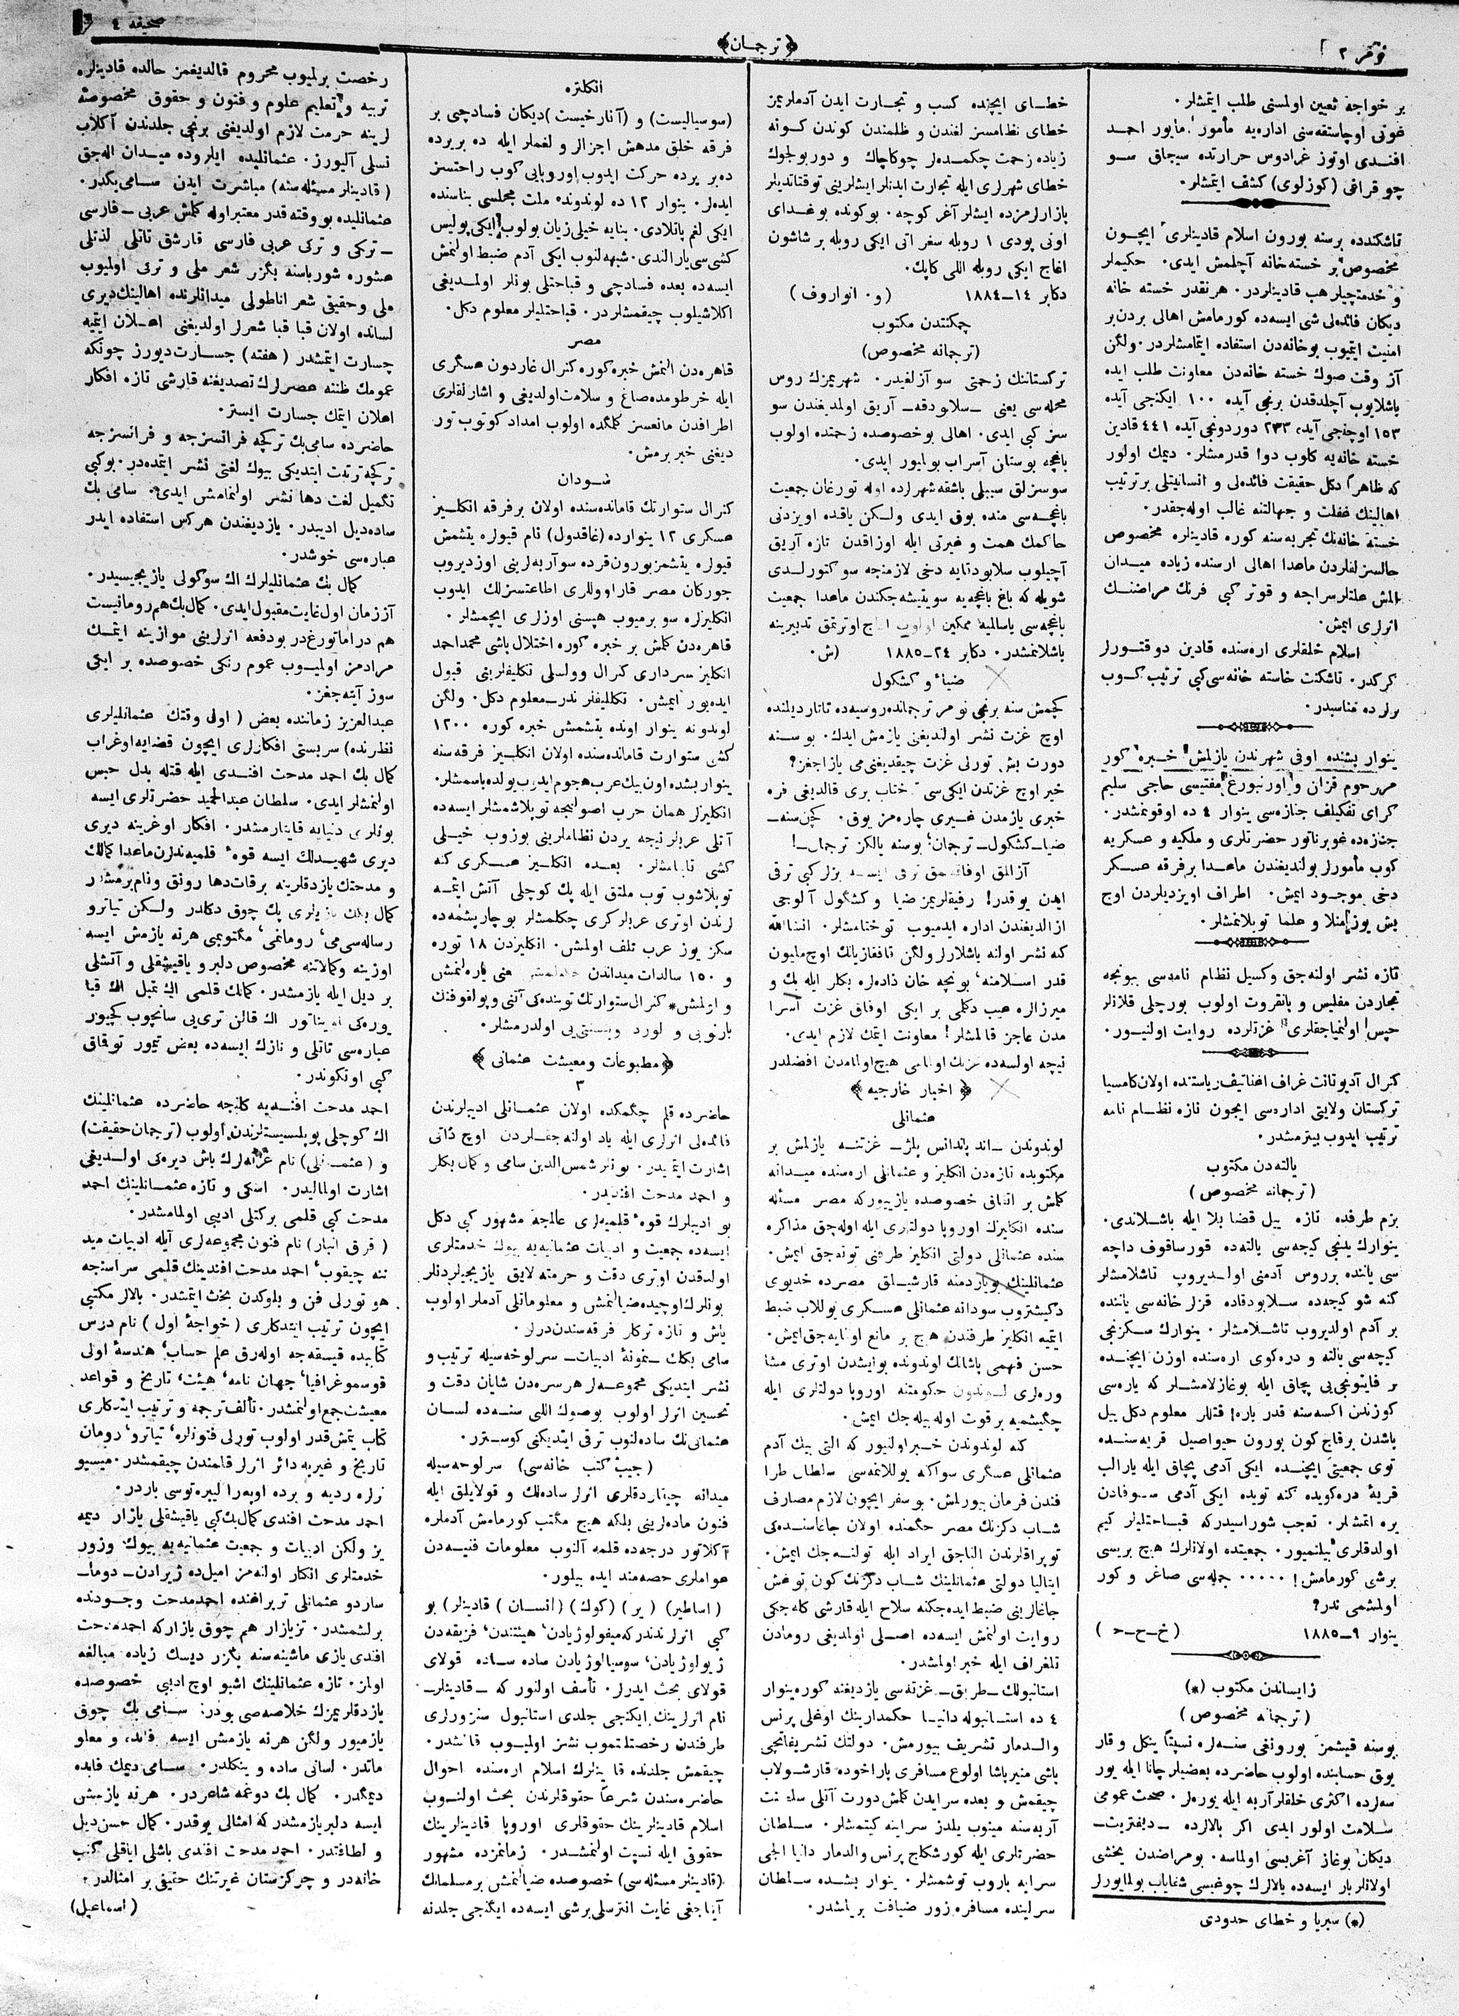 نومر ٢
﴿ ترجمان ﴾
صحیفه ٤
بر خواجه تعیین اولمسنی طلب ایتمشلر.
افندی اوتوز غرادوس حرارتده سیجاق سو
چوقراقی (کوزلوی) کشف ایتمشلر.
تاشکندده برسنه بورون اسلام قادینلری ایچون
مخصوص بر خسته خانه آچلمش ایدی. حکیملر
و خدمتچیلر هب قادینلردر. هرنقدر خسته خانه
دیکان فائده‌لی شی ایسه‌ده کورمامش اهالی بردن بر
امنیت ایتمیوب بوخانه‌دن استفاده ایتمامشلردر. ولکن
آز وقت صوك خسته خانه‌دن معاونت طلب ایده
باشلایوب آچلدقدن برنجی آیده ١٠٠ ایکنجی آیده
١٥٣ اوچنجی آیده ٢٣٣ دوردونجی آیده ٤٤١ قادین
خسته خانه‌یه کلوب دوا قدرمشلر. دیمك اولور
که ظاهراً دکل حقیقت فائده‌لی و انسانیتلی بر ترتیب
اهالینك غفلت و جهالتنه غالب اوله‌جقدر.
خسته خانه‌نك تجربه‌سنه کوره قادینلره مخصوص
حالسزلقلردن ماعدا اهالی ارسنده زیاده میدان
المش علتلر سراجه و قوتر کبی فرنك مراضنك
اثرلری ایمش.
اسلام خلقلری اره‌سنده قادین دوقتورلر
کرکدر. تاشکنت خاسته خانه‌سی کبی ترتیب کوب
یرلرده مناسبدر.
ینوار بشنده اوفی شهرندن یازلمش خبره کور
مرحوم قزان و اورنبورغ مفتیسی حاجی سلیم
کرای تفکیلف جنازه‌سی ینوار ٤ ده اوقونمشدر.
جنازه‌ده غوبرناتور حضرتلری و ملکیه و عسکریه
کوب مأمورلر بولندیغندن ماعدا برفرقه عسکر
دخی موجود ایمش. اطراف اویزدیلردن اوچ
بش یوز منلا و علما توبلانمشلر.
تازه نشر اولنه‌جق وکسیل نظام نامه‌سی بیونجه
تجاردن مفلیس و بانقروت اولوب بورچلی قلانلر
حبس اولنمیاجقلری غزتلرده روایت اولنیور.
کنرال آدیوتانت غراف اغناتیف ریاستنده اولان کامسیا
ترکستان ولایتی اداره‌سی ایچون تازه نظام نامه
ترتیب ایدوب بیترمشدر.
یالته‌دن مکتوب
( ترجمانه مخصوص )
بزم طرفده تازه ییل قضا بلا ایله باشلاندی.
ینوارك یدنجی کیجه‌سی یالته‌ده قورساقوف داچه
سی یاننده برروس آدمنی اولدیروب تاشلامشلر
کنه شو کیجه‌ده سلابودقاده قزلر خانه‌سی یاننده
بر آدم اولدیروب تاشلامشلر. ینوارك سکزنجی
کیجه‌سی یالته و دره‌کوی اره‌سنده اوزن ایچنده
بر فایتونجی‌یی پچاق ایله بوغازلامشلر که یاره‌سی
کوزندن اکسه‌سنه قدر یاره! قتللر معلوم دکل ییل
باشدن برقاج کون بورون حیواصیل قریه‌سنده
توی جمعیتی ایچنده ایکی آدمی پچاق ایله یارالب
قریهٔ دره‌کویده کنه تویده ایکی آدمی سوفادن
یره اتمشلر. تعجب شوراسیدر که قباحتلیلر کیم
اولدقلری بیلنمیور. جمعیتده اولانلرك هیچ بریسی
برشی کورمامش! ..... جمله‌سی صاغر و کور
اولمشمی ندر؟
ینوار ٩ـ١٨٨٥ (خ‌ـح‌ـح )
زایساندن مکتوب (*)
( ترجمانه مخصوص )
بوسنه قیشمز بورونغی سنه‌لره نسبتاً ینکل و قار
یوق حسابنده اولوب حاضرده بعضیلر چانا ایله یور
سه‌لرده اکثری خلقلر آربه ایله یوره‌لر. صحت عمومی
سلامت اولور ایدی اکر بالالرده ـ دیفتریت ـ
دیکان بوغاز آغریسی اولماسه. بومراضدن یخشی
اولانلر بار ایسه‌ده بالالرك چوغیسی شفایاب بولمایورلر
(*) سبریا و خطای حدودی
خطای ایچنده کسب و تجارت ایدن آدملریمز
خطای نظامسز لغندن و ظلمندن کوندن کونه
زیاده زحمت چکمده‌لر چوکاچاك و دوربولجوك
خطای شهرلری ایله تجارت ایدنلر ایشلرینی توقتاتدیلر
بازارلرمزده ایشلر آغر کوچه. بوکونده بوغدای
اونی پودی ١ روبله سغر اتی ایکی روبله بر شاشون
اغاج ایکی روبله اللی کاپك.
دکابر ١٤ـ١٨٨٤ ( و. انواروف )
چمکنتدن مکتوب
(ترجمانه مخصوص)
ترکستاننك زحمتی سو آزلغیدر. شهریمزك روس
محله‌سی یعنی ـ سلابودقه ـ آریق اولمدیغندن سو
سز کبی ایدی. اهالی بوخصوصده زحمتده اولوب
باغچه بوستان آسراب بولمایور ایدی.
سوسزلق سببلی باشقه شهرلرده اوله تورغان جمعیت
باغچه‌سی منده یوق ایدی ولکن یاقده اویزدنی
حاکمك همت و غیرتی ایله اوزاقدن تازه آریق
آچیلوب سلابودقایه دخی لازمنجه سو کتورلدی
شویله که باغ باغچه‌یه سو یتیشه‌جکندن ماعدا جمعیت
باغچه‌سی یاسالمه ممکین اولوب اغاج اوترتمق تدبیرینه
باشلانمشدر. دکابر ٢٤ـ١٨٨٥ (ش.
ضیاء و کشکول
کچمش سنه برنجی نومر ترجمانده روسیه‌ده تاتار دیلنده
اوچ غزت نشر اولندیغنی یازمش ایدك. بو سنه
دورت بش تورلی غزت چیقدیغنی می یازاجغز؟
خیر اوچ غزتدن ایکی‌سی تختاب بری قالدیغی قره
خبری یازمدن غیری چاره‌مز یوق. کچن سنه ـ
ضیا ـ کشکول ـ ترجمان؛ بوسنه یالکز ترجمان ـ!
ایدن یوقدر! رفیقلریمز ضیا و کشکول آلوجی
ازالدیغندن اداره ایدمیوب توختامشلر. انشاالله
کنه نشر اولنه باشلارلر ولکن قافقازیانك اوچ ملیون
قدر اسلامنه، بونچه خان ذاده‌لره بکلر ایله بك و
میرزالره عیب دکلمی بر ایکی اوفاق غزت آسرا
مدن عاجز قالمشلر! معاونت ایتمك لازم ایدی.
نیچه اولسه‌ده تزك اولامی هیچ اولمامدن افضلدر
﴿ اخبار خارجیه ﴾
عثمانلی
لوندوندن ـ اند پاندانس بلژ ـ غزتنه یازلمش بر
مکتوبده تازه‌دن انکلیز و عثمانلی اره‌سنده میدانه
کلمش بر اتفاق خصوصده یازییور که مصر مسئله
سنده انکلیزك اوروپا دولتلری ایله اوله‌جق مذاکره
سنده عثمانلی دولتی انکلیز طرفنی توته‌جق ایمش.
عثمانلینك بو یاردمنه قارشیلق مصرده خدیوی
دکیشتروب سودانه عثمانلی عسکری یوللاب ضبط
ایتمیه انکلیز طرفندن هیچ بر مانع اولمایه‌جق ایمش.
حسن فهمی پاشانك لوندونده بولیشدن اوتری مشا
وره‌لری لوندون حکومتنه اوروپا دولتلری ایله
چکیشمیه بر قوت اوله بیله‌جك ایمش.
کنه لوندوندن خبر اولنیور که التی بیك آدم
عثمانلی عسگری سواکنه یوللانمه‌سی سلطان طرا
فندن فرمان بیورلمش. بوسفر ایچون لازم مصارف
شاب دکزنك مصر حکمنده اولان جاغاسنده‌کی
توپراقلرندن الناجق ایراد ایله تولنه‌جك ایمش.
ایتالیا دولتی عثمانلینك شاب دکزنك کون توغش
جاغالرینی ضبط ایده‌جکنه سلاح ایله قارشی کله‌جکی
روایت اولنمش ایسه‌ده اصلی اولمدیغی رومادن
تلغراف ایله خبر اولمشدر.
استانبولك ـ طریق ـ غزته‌سی یازدیغنه کوره ینوار
٤ ده استانبوله دانیا حکمدارینك اوغلی پرنس
والدمار تشریف بیورمش. دولتك تشریفاتچی
باشی منیرپاشا اولوغ مسافری پاراخودده قارشولاب
چیقمش و بعده سرایدن کلمش دورت آتلی سلطنت
آربه‌سنه مینوب یلدز سراینه کیتمشلر. سلطان
حضرتلری ایله کورشکاچ پرنس والدمار دانیا الچی
سرایه باروب توشمشلر. ینوار بشده سلطان
سراینده مسافره زور ضیافت بریلمشدر.
انکلتره
(سوسیالیست) و (آنارخیست) دیکان فسادچی بر
فرقه خلق مدهش اجزالر و لغملر ایله ده بربرده
ده بر یرده حرکت ایدوب اوروپایی کوب راحتسز
ایده‌لر. ینوار ١٢ ده لوندونده ملت مجلسی بناسنده
ایکی لغم پاتلادی. بنایه خیلی زیان بولوب ایکی پولیس
کشی‌سی یارالندی. شبهه‌لنوب ایکی آدم ضبط اولنمش
ایسه‌ده بعده فسادچی و قباحتلی بونلر اولمدیغی
اکلاشیلوب چیقمشلردر. قباحتلیلر معلوم دکل.
مصر
قاهره‌دن النمش خبره کوره کنرال غاردون عسگری
ایله خرطومده صاغ و سلامت اولدیغی و اشارلقلری
اطرافدن مانعسز کلمکده اولوب امداد کوتوب تور
دیغنی خبر برمش.
سودان
کنرال ستوارتك قامانده‌سنده اولان برفرقه انکلیز
عسکری ١٢ ینوارده (غاقدول) نام قبولره یتشمش
قبولره یتشمز بورون قرده سو آربه‌لرینی اوزدیروب
جورکان مصر قاراووللری اطاعتسزلك ایدوب
انکلیزلره سو برمیوب هپسنی اوزلری ایچمشلر.
قاهره‌دن کلمش بر خبره کوره اختلال باشی محمداحمد
انکلیز سرداری کنرال وولسلی تکلیفلرینی قبول
ایده‌یور ایمش. تکلیفلر ندر ـ معلوم دکل. ولکن
لوندونه ینوار اونده یتشمش خبره کوره ١٢٠٠
کشی ستوارت قامانده‌سنده اولان انکلیز فرقه‌سنه
ینوار بشده اون بیك عرب هجوم ایدرب یولده باسمشلر.
انکلیزلر همان حرب اصولنجه توپلاشمشلر ایسه‌ده
آتلی عربلر نیچه یردن نظاملرینی بوزوب خیلی
کشی تاپامشلر. بعده انکلیز عسکری کنه
توپلاشوب توپ ملتق ایله پك کوچلی آتش ایتمه
لرندن اوتری عربلر کری چکلمشلر بو چارپشمه‌ده
سکز یوز عرب تلف اولمش. انکلیزدن ١٨ توره
و ١٥٠ سالدات میداندن یعنی یاره‌لنمش
و اولمش. کنرال ستوارتك توبنده‌کی آتنی و پولقوفنك
بارنوبی و لورد ویستی‌یی اولدرمشلر.
﴿ مطبوعات و معیشت عثمانی ﴾
٣
حاضرده قلم چکمکده اولان عثمانلی ادیبلرندن
فائده‌لی اثرلری ایله یاد اولنه‌جقلردن اوچ ذاتی
اشارت ایتمیدر. بونلر شمس‌الدین سامی و کمال بکلر
و احمد مدحت افندیدر.
بو ادیبلرك قوهٔ قلمیه‌لری عالمجه مشهور کبی دکل
ایسه‌ده جمعیت و ادبیات عثمانیه‌یه بیوك خدمتلری
اولدقدن اوتری دقت و حرمته لایق یازیجیلردنلر
بونلرك اوچیده ضیالنمش و معلوماتلی آدملر اولوب
یاش و تازه ترکلر فرقه‌سندندرلر.
سامی بکك ـ نمونهٔ ادبیات ـ سرلوحه‌سیله ترتیب و
نشر ایتدیکی مجموعه‌لر هر سره‌دن شایان دقت و
تحسین اثرلر اولوب بوصوك اللی سنه‌ده لسان
عثمانی‌نك ساده‌لنوب ترقی ایتدیکنی کوسترر.
(جیب کتب خانه‌سی) سرلوحه‌سیله
میدانه چیقاردقلری اثرلر ساده‌لك و قولایلق ایله
فنون ماده‌لرینی بلکه هیچ مکتب کورمامش آدملره
آکلاتور درجه‌ده قلمه آلنوب معلومات فنیه‌دن
عوامی حصه‌مند ایده بیلور.
(اساطیر) (یر) (کوك) (انسان) (قادینلر) بو
کبی اثرلرندندر که میفولوژیادن، هیئتدن، فزیقه‌دن
ژیولوژیادن، سوسیالوژیادن ساده ساده قولای
قولای بحث ایدرلر. تأسف اولنور که ـ قادینلر ـ
نام اثرلرینك ایکنجی جلدی استانبول سنزورلری
طرفندن رخصتلنمیوب نشر اولمیوب قالمشدر.
چیقمش جلدنده قادینلرك اسلام اره‌سنده احوال
حاضره‌سندن شرعاً حقوقلرندن بحث اولنوب
اسلام قادینلرینك حقوقلری اوروپا قادینلرینك
حقوقی ایله نسبت اولنمشدر. زمانمزده مشهور
(قادینلر مسئله‌سی) خصوصده ضیالنمش برمسلمانك
آیتاجغی غایت انترسلی برشی ایسه‌ده ایکنجی جلدنه
رخصت برلمیوب محروم قالدیغمز حالده قادینلره
تربیه و تعلیم علوم و فنون و حقوق مخصوصه
لرینه حرمت لازم اولدیغنی برنجی جلدندن آکلاب
تسلی آلیورز. عثمانلیده ایلروده میدان اله‌جق
( قادینلر مسئله‌سنه) مباشرت ایدن سامی‌بکدر.
عثمانلیده بو وقته قدر معتبر اوله کلمش عربی ـ فارسی
ـ ترکی و ترکی عربی فارسی قارشق تاتلی لذتلی
عشوره شورباسنه بکزر شعر ملی و ترکی اولمیوب
ملی و حقیقی شعر اناطولی میدانلرنده اهالینك دیری
لسانده اولان قبا قبا شعرلر اولدیغنی اعلان ایتمیه
جسارت ایتمشدر ( هفته ) جسارت دیورز چونکه
عمومك ظننه عصرلرك تصدیغنه قارشی تازه افکار
اعلان ایتمك جسارت ایستر.
حاضرده سامی‌بك ترکچه فرانسزجه و فرانسزجه
ترکچه ترتیب ایتدیکی بیوك لغتی نشر ایتمده‌در. بوکبی
تکمیل لغت دها نشر اولنمامش ایدی. سامی بك
ساده‌دیل ادیبدر. یازدیغندن هرکس استفاده ایدر
عباره‌سی خوشدر.
کمال بك عثمانلیلرك اك سوکولی یازیجیسیدر.
آز زمان اول غایت مقبول ایدی. کمال‌بك هم رومانیست
هم دراماتورغ‌در بودفعه اثرلرینی موازینه ایتمك
مرادمز اولمیوب عموم رنکی خصوصده بر ایکی
سوز آیته‌جغز.
عبدالعزیز زماننده بعض ( اول وقتك عثمانلیلری
نظرنده) سربستی افکارلری ایچون قضایه اوغراب
کمال بك احمد مدحت افندی ایله قتله بدل حبس
اولنمشلر ایدی. سلطان عبدالحمید حضرتلری ایسه
بونلری دنیایه قایتارمشدر. افکار اوغرینه دیری
دیری شهیدلك ایسه قوهٔ قلمیه‌لردن ماعدا کمالك
و مدحتك یازدقلرینه برقات دها رونق و نام برمشدر
کمال بکك یازیلری پك چوق دکلدر ولکن تیاترو
رساله‌سی‌می، رومانمی، مکتوبمی هرنه یازمش ایسه
اوزینه وکمالاتنه مخصوص دلبر و یاقیشقلی و آتشلی
بر دیل ایله یازمشدر. کمالك قلمی اك تنبل اك قبا
عباره‌سی تاتلی و نازك ایسه‌ده بعض تیمور توقماق
کبی اونکوندر.
احمد مدحت افندیه کلنجه حاضرده عثمانلینك
اك کوچلی پوبلسیستلرندن اولوب (ترجمان حقیقت)
و (عثمانلی) نام غزته‌لرك باش دیره‌کی اولدیغی
اشارت اولمالیدر. اسکی و تازه عثمانلینك احمد
مدحت کبی قلمی برکتلی ادیبی اولمامشدر.
( قرق انبار) نام فنون مجموعه‌لری ایله ادبیات مید
اننه چیقوب احمد مدحت افندینك قلمی سراسنجه
هو تورلی فن و بلوکدن بحث ایتمشدر. بالالر مکتبی
ایچون ترتیب ایتدکاری ( خواجهٔ اول ) نام درس
کتابیده قیسقه‌جه اوله‌رق علم حساب، هندسهٔ اولی
قوسموغرافیا، جهان نامه، هیئت، تاریخ و قواعد
معیشت جمع اولنمشدر. تألف ترجمه و ترتیب ایتدکاری
کتاب یتمش قدر اولوب تورلی فنونلره، تیاترو، رومان
تاریخ و غیریه دائر اثرلر قلمندن چیقمشدر. میسیو
احمد مدحت افندی کمال بك کبی یاقیشقلی یازار دیمه
یز ولکن ادبیات و جمعیت عثمانیه‌یه بیوك وزور
خدمتلری انکار اولنه‌مز امیل‌ده ژیرادن ـ دوما ـ
ساردو عثمانلی تبراغنده احمدمدحت وجودنده
برلشمشدر. تزیازار هم چوق یازار که احمدمدحت
افندی یازی ماشینه‌سنه بکزر دیسك زیاده مبالغه
اولمز. تازه عثمانلینك اشبو اوچ ادیبی خصوصده
یازدقلریمزك خلاصه‌سی بودر: سامی بك چوق
یازمیور ولکن هرنه یازمش ایسه فائده و معلو
ماتدر. لسانی ساده و ینکلدر. سامی دیمك فایده
دیمکدر. کمال بك دوغمه شاعردر. هرنه یازمش
ایسه دلبر یازمشدر که امثالی یوقدر. کمال حسن دیل
و لطافتدر. احمد مدحت افندی باشلی ایاقلی کتب
خانه‌در و چرکزستان غیرتنك حقیقی بر امثالدر.
( اسماعیل )